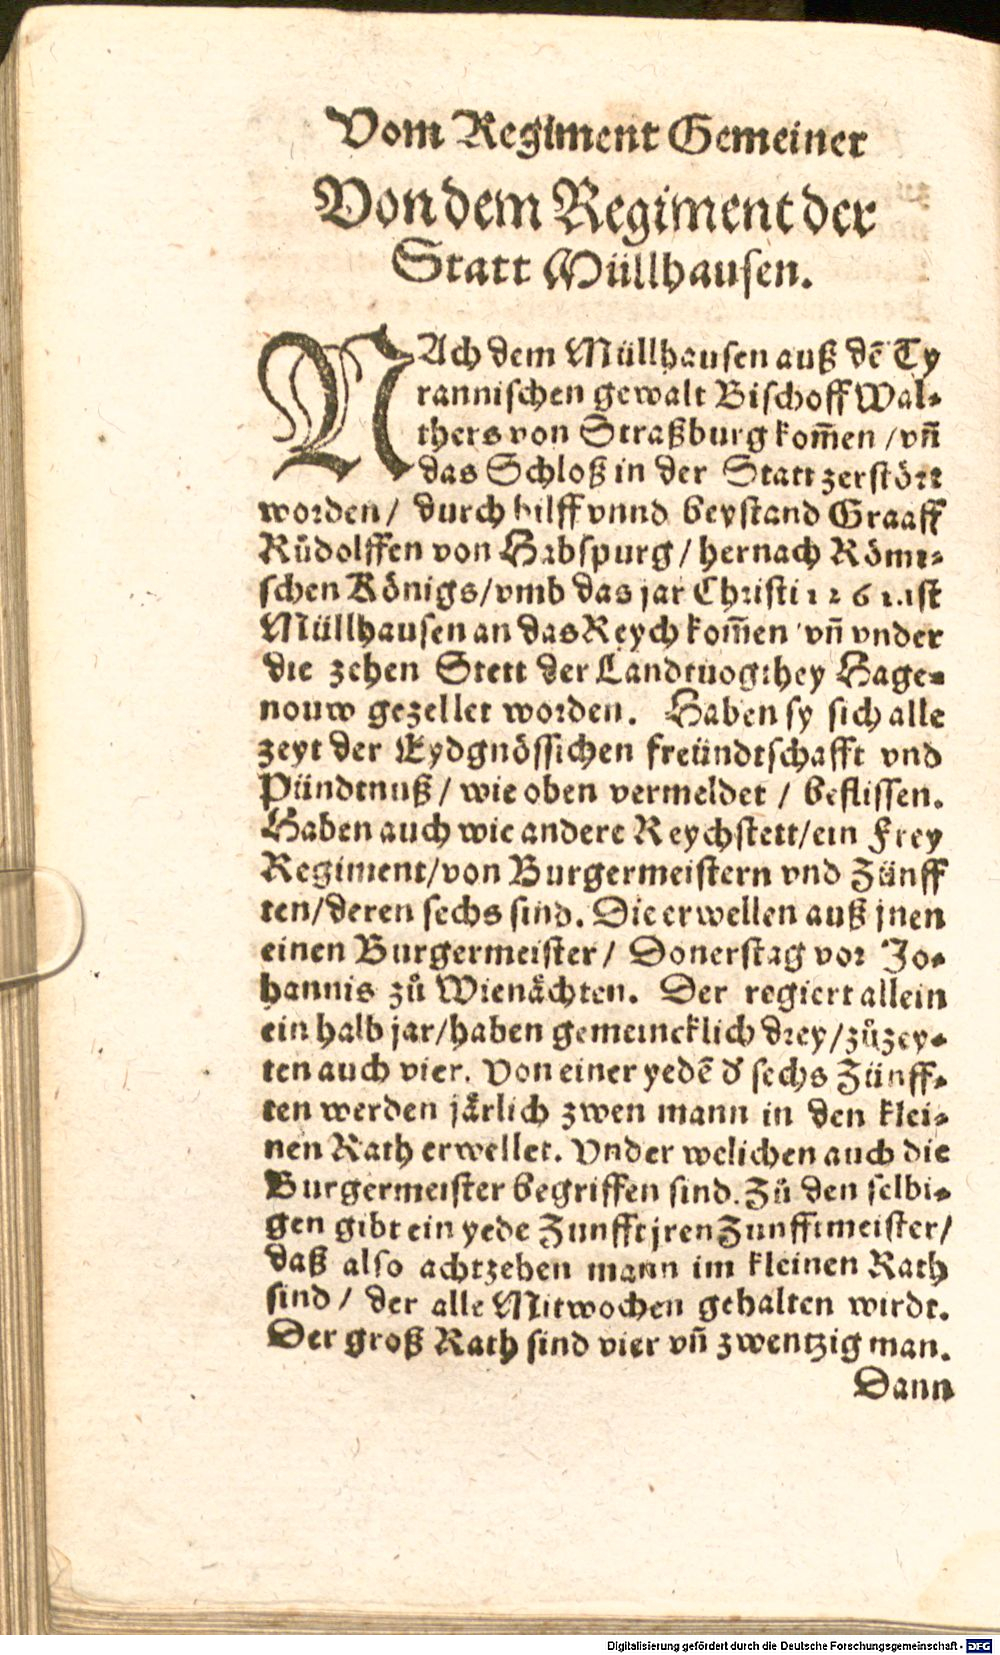 Vom Regiment Gemeiner
Von dem Regiment der
Statt Müllhausen.
NAch dem Müllhausen auß dẽ Ty
rannischen gewalt Bischoff Wal-
thers von Straßburg kom̃en / vñ
das Schloß in der Statt zerstört
worden / durch hilff vnnd beystand Graaff
Růdolffen von Habspurg / hernach Römi-
schen Königs / vmb das jar Christi 1261. ist
Müllhausen an das Reych kom̃en / vñ vnder
die zehen Stett der Landtuogthey Hage-
nouw gezellet worden. Haben sy sich alle
zeyt der Eydgnössichen freündtschafft vnd
Pündtnuß / wie oben vermeldet / beflissen.
Haben auch wie andere Reychstett / ein Frey
Regiment / von Burgermeistern vnd Zünff
ten / deren sechs sind. Die erwellen auß jnen
einen Burgermeister / Donerstag vor Jo-
hannis zů Wienächten. Der regiert allein
ein halb jar / haben gemeincklich drey / zůzey-
ten auch vier. Von einer yedẽ d' sechs Zünff-
ten werden järlich zwen mann in den klei-
nen Rath erwellet. Vnder welichen auch die
Burgermeister begriffen sind. Zů den selbi-
gen gibt ein yede Zunfft jren Zunfftmeister /
daß also achtzehen mann im kleinen Rath
sind / der alle Mitwochen gehalten wirdt.
Der groß Rath sind vier vñ zwentzig man.
Dann
Digitalisierung gefördert durch die Deutsche Forschungsgemeinschaft - DFG